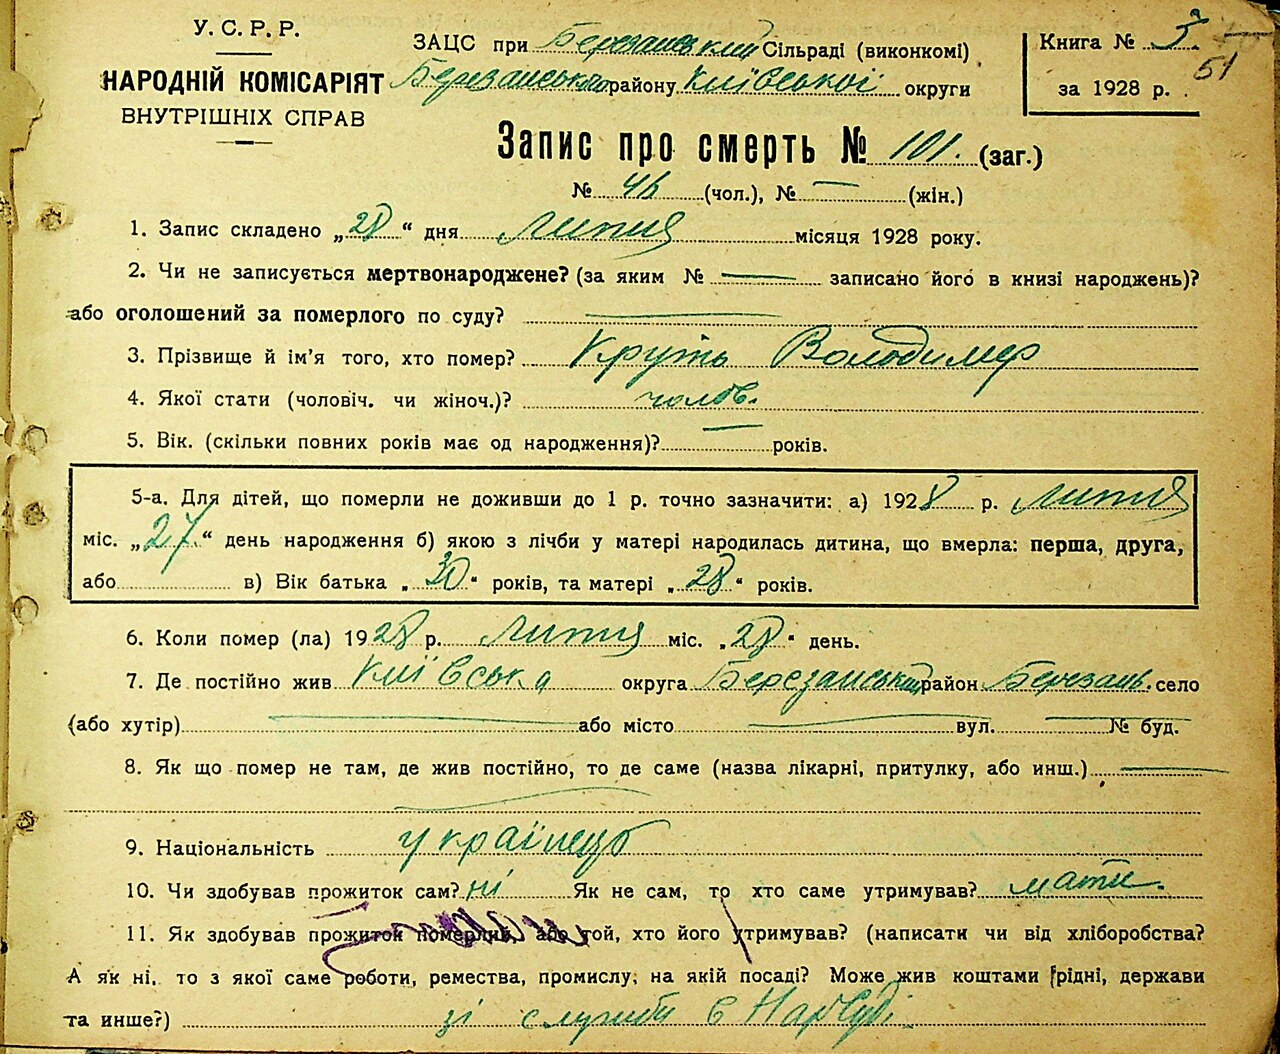 У. С. Р. Р.
НАРОДНІЙ КОМІСАРІЯТ
ВНУТРІШНІХ СПРАВ
ЗАЦС при Березанський Сільраді (виконкомі)
Березанського району Київської округи
Книга № 3
51
за 1928 р.
Запис про смерть № 101. (заг.)
№ 46 (чол.), № — (жін.)
1. Запис складено „28“ дня Липня місяця 1928 року.
2. Чи не записується мертвонароджене? (за яким № — записано його в книзі народжень)?
або оголошений за померлого по суду? —
3. Прізвище й ім'я того, хто помер? Круть Володимер
4. Якої статі (чоловіч. чи жіноч.)? чолов.
5. Вік. (скільки повних років має од народження)? — років.
5-а. Для дітей, що померли не доживши до 1 р. точно зазначити: а) 1928 р. Липня
міс. „27.“ день народження б) якою з лічби у матері народилась дитина, що вмерла: перша, друга,
або в) Вік батька „30“ років, та матері „28“ років.
6. Коли помер (ла) 1928 р. Липня міс. „28“ день.
7. Де постійно жив Київська округа Березанський район Березань село
(або хутір) — або місто — вул. — № буд.
8. Як що помер не там, де жив постійно, то де саме (назва лікарні, притулку, або инш.) —
9. Національність українець
10. Чи здобував прожиток сам? ні Як не сам, то хто саме утримував? мати.
11. Як здобував прожиток померлий або той, хто його утримував? (написати чи від хліборобства?
А як ні, то з якої саме роботи, ремества, промислу, на якій посаді? Може жив коштами рідні, держави
та инше?) зі служби в НарСуді